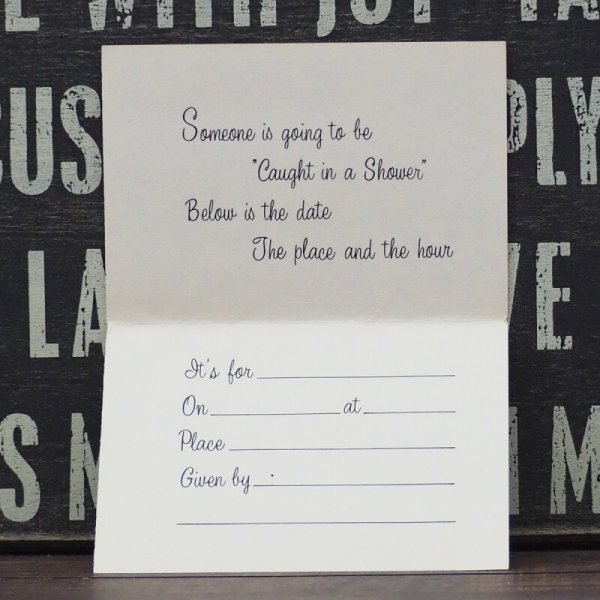 E WITH JUST TA
CUS PLY
Someone is going to be
"Caught in a Shower"
Below is the date
The place and the hour
LA VE
It's for
On at
Place
Given by
IS M